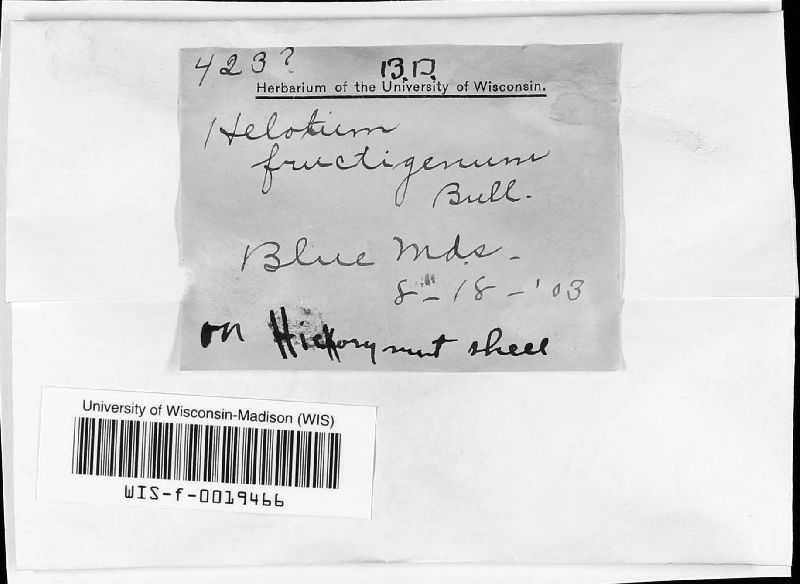 423?
B.D.
Herbarium of the University of Wisconsin.
Helotium
fructigenum
Bull.
Blue Mds.
8-18-'03
on Hickory nut shell
University of Wisconsin-Madison (WIS)
WIS-f-0019466